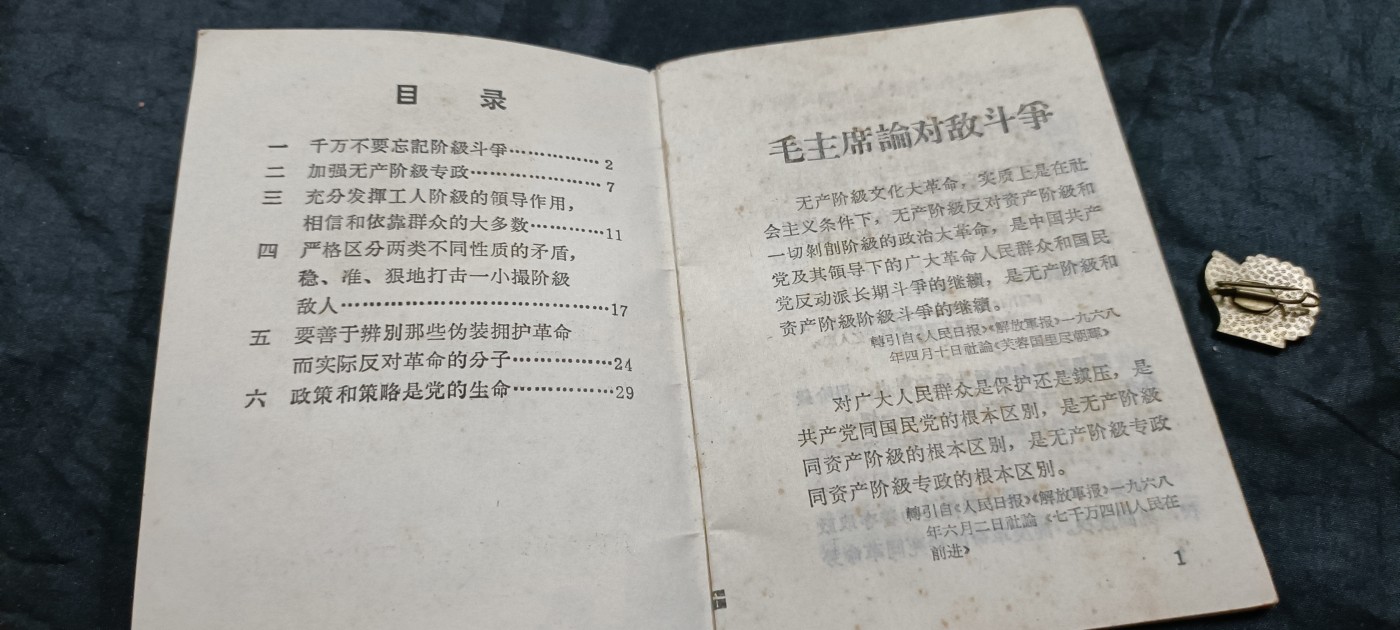 目 录
一 千万不要忘記阶級斗爭……………2
二 加强无产阶級专政…………………7
三 充分发揮工人阶級的領导作用，
相信和依靠群众的大多数…………11
四 严格区分两类不同性质的矛盾，
稳、准、狠地打击一小撮阶級
敌人……………………………………17
五 要善于辨别那些伪装拥护革命
而实际反对革命的分子……………24
六 政策和策略是党的生命……………29
毛主席論对敌斗爭
无产阶級文化大革命，实质上是在社
会主义条件下，无产阶級反对资产阶級和
一切剝削阶級的政治大革命，是中国共产
党及其領导下的广大革命人民群众和国民
党反动派长期斗爭的继續，是无产阶級和
资产阶級阶級斗爭的继續。
轉引自《人民日报》《解放軍报》一九六八
年四月十日社論《芙蓉国里尽朝暉》
对广大人民群众是保护还是鎮压，是
共产党同国民党的根本区别，是无产阶級
同资产阶級的根本区别，是无产阶級专政
同资产阶級专政的根本区别。
轉引自《人民日报》《解放軍报》一九六八
年六月二日社論《七千万四川人民在
前进》
1